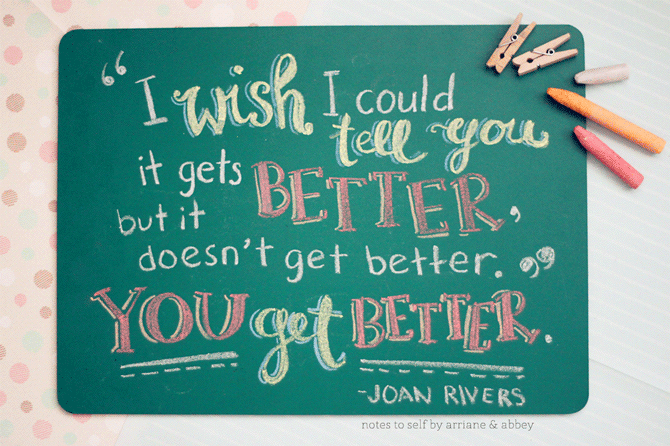 “I wish I could
tell you
it gets BETTER,
but it
doesn't get better.”
YOU get BETTER.
-JOAN RIVERS
notes to self by arriane & abbey